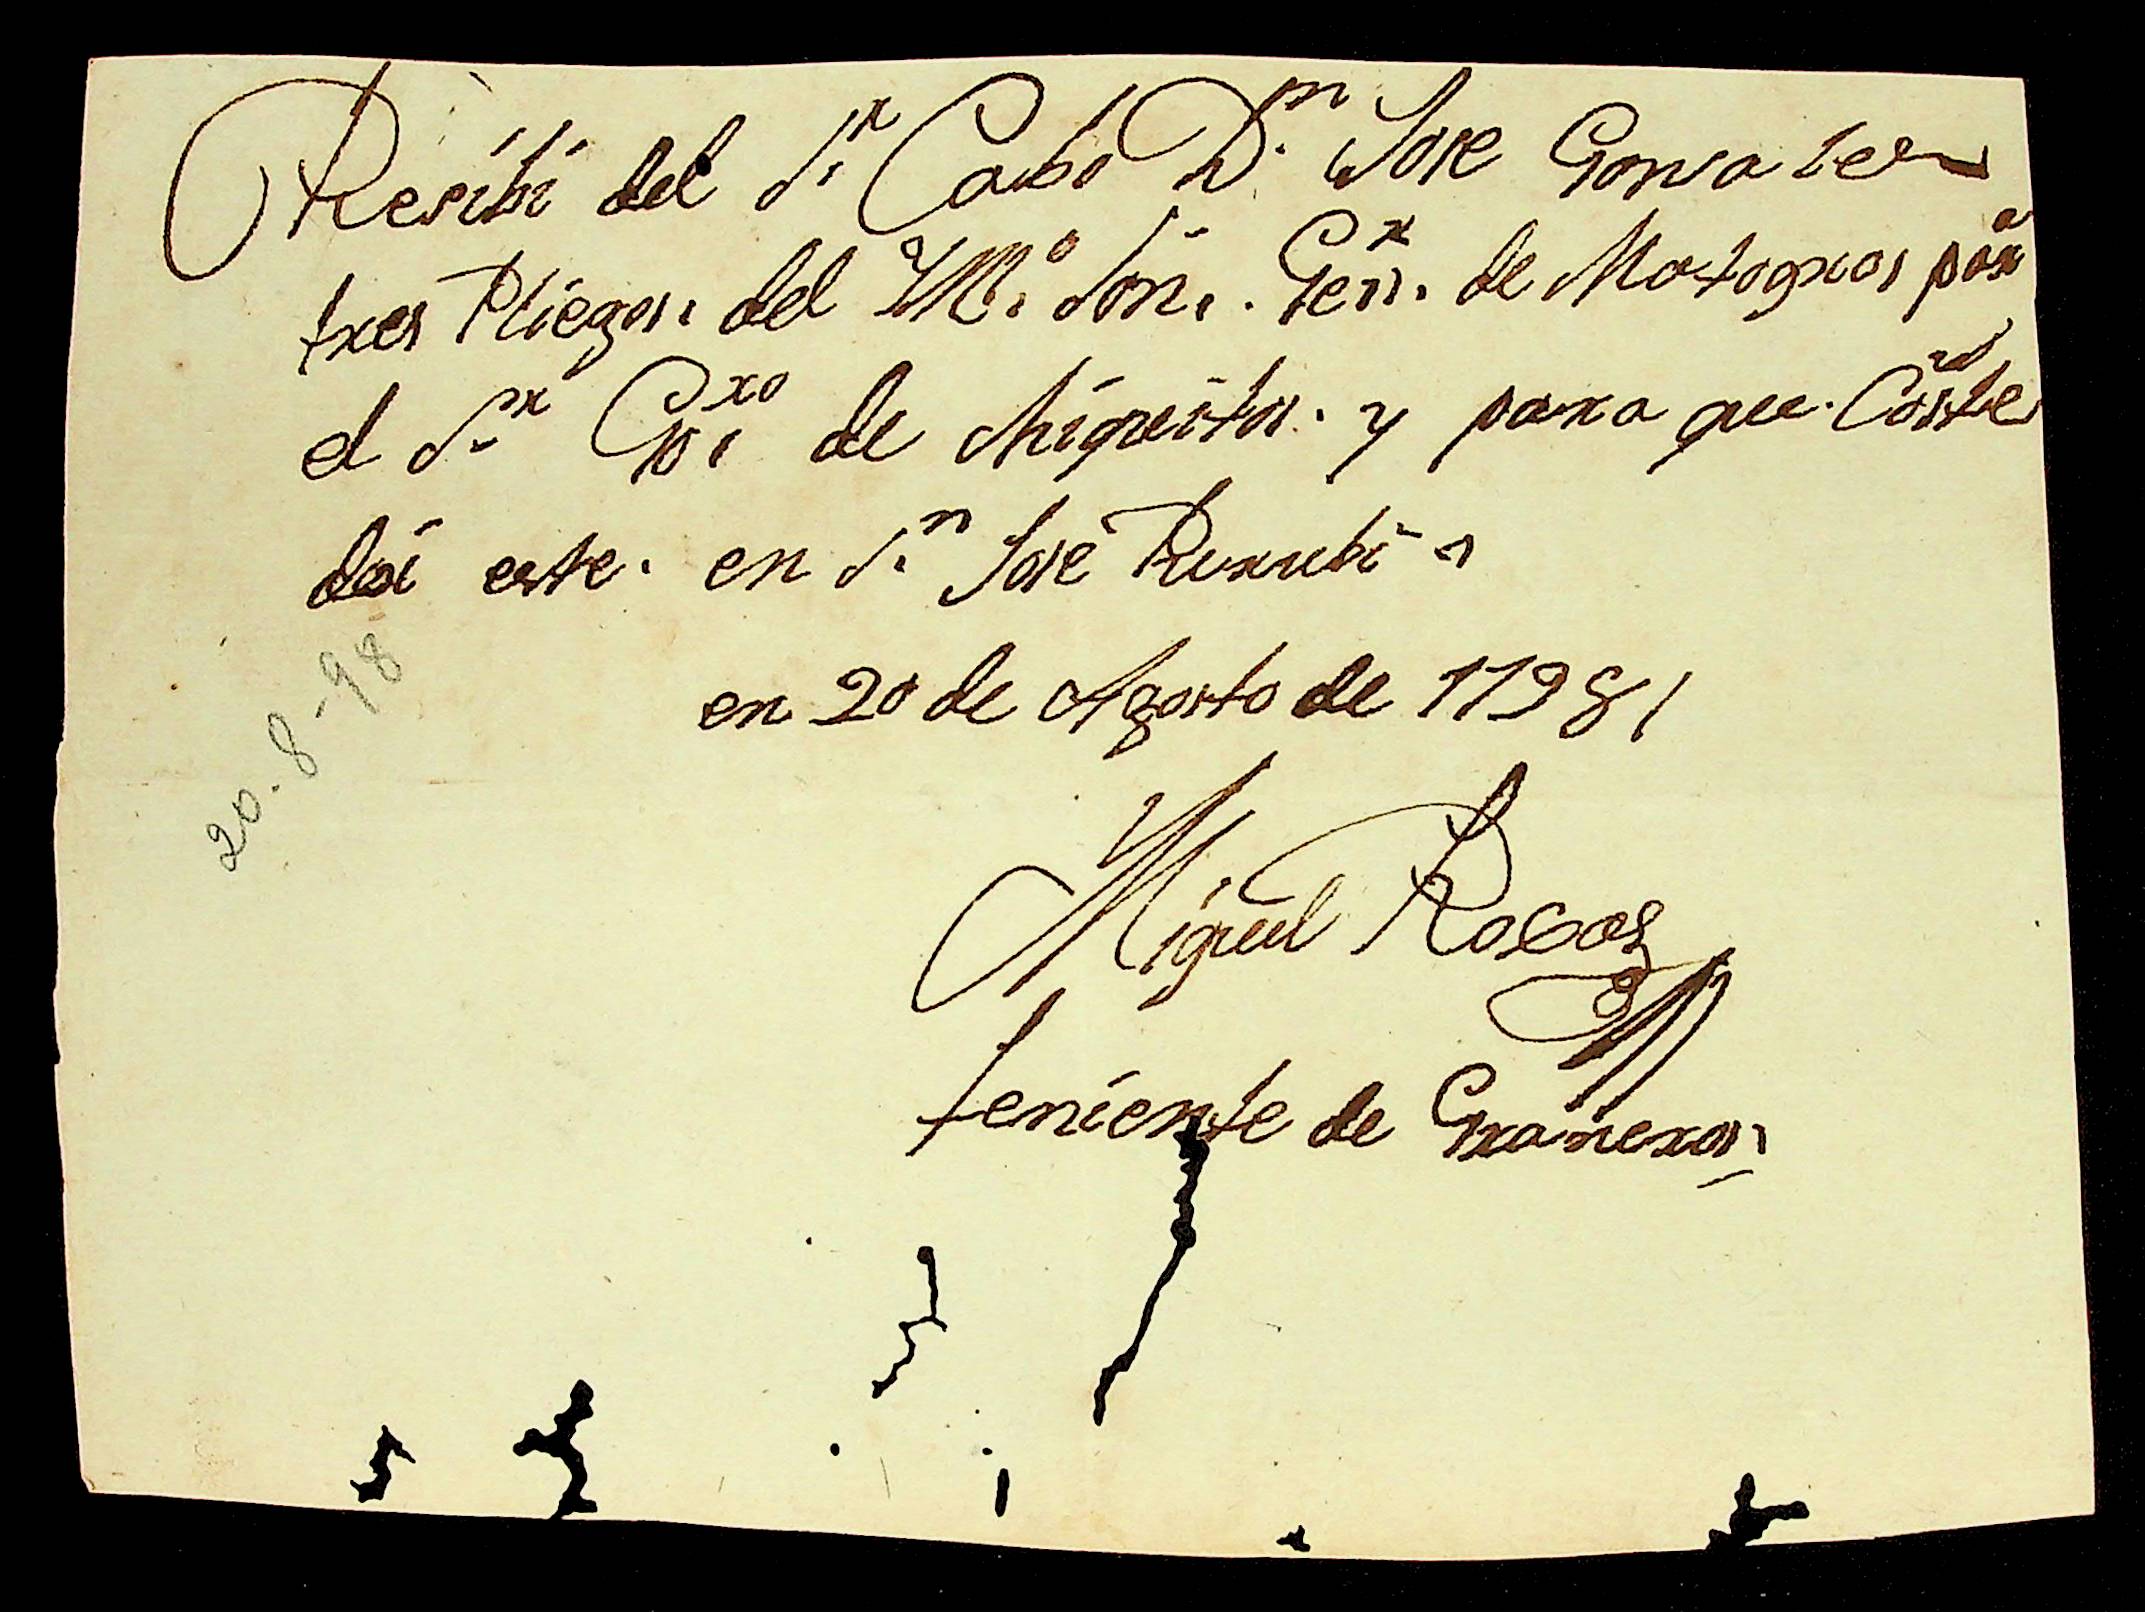 Resibi del S.r Cabo D.n Jose Gonsales
tres Pliegos. del Ill.mo Son.. Gen.r de Motogros pa̅ra
el S.r Go.ro de chiquitos. y para que. Co̅ste
doi este. en S.n José Ruxubi
en 20 de Agosto de 1798
Miguel Roxas
teniente de Graneros
20-8-98